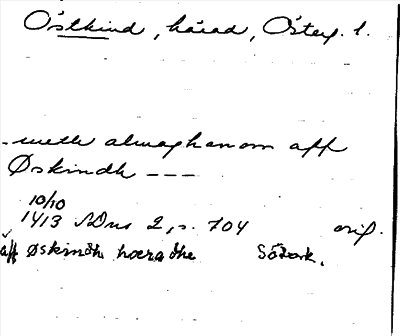 Östkind, härad, Österg. l.
- meth almoghanom aff
Øskindh ---
10/10
1413 SDns 2, s. 704 orig.
aff Øskindh hæradhe Söderk.